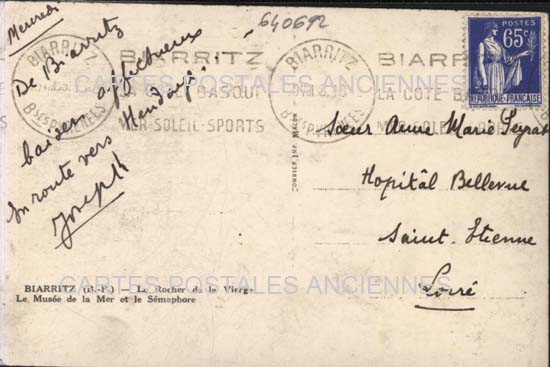 Mercredi
640692
De Biarritz
baisers affectueux
En route vers Hendaye.
Joseph
BIARRITZ
BSES PYRÉNÉES
BIARRITZ
LA CÔTE BASQUE
MER-SOLEIL-SPORTS
BIARRITZ
BSES PYRÉNÉES
BIARRITZ
LA CÔTE
MER-SOLEIL
POSTES
65c
RÉPUBLIQUE FRANÇAISE
COMBIER IMP. MACON
Sœur Anne Marie
Hopitâl Bellevue
Saint-Etienne
Loire
BIARRITZ (B.-P.) — Le Rocher de la Vierge
Le Musée de la Mer et le Sémaphore
CARTES POSTALES ANCIENNES
CARTES POSTALES ANCIENNES